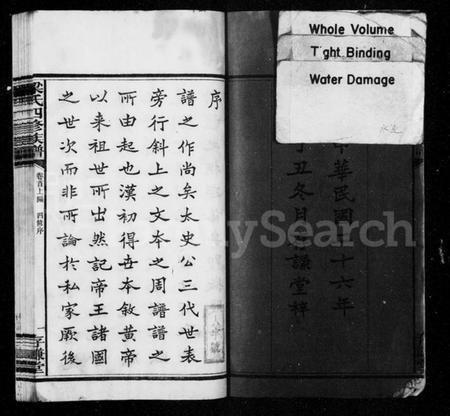 Whole Volume
Tight Binding
Water Damage
中華民國三十六年
丁丑冬月謙堂梓
序
譜之作尚矣太史公三代世表
旁行斜上之文本之周譜譜之
所由起也漢初得世本敘黃帝
以來祖世所出然記帝王諸國
之世次而非所論於私家厥後
梁氏四修族譜
卷首上編 四修序
FamilySearch